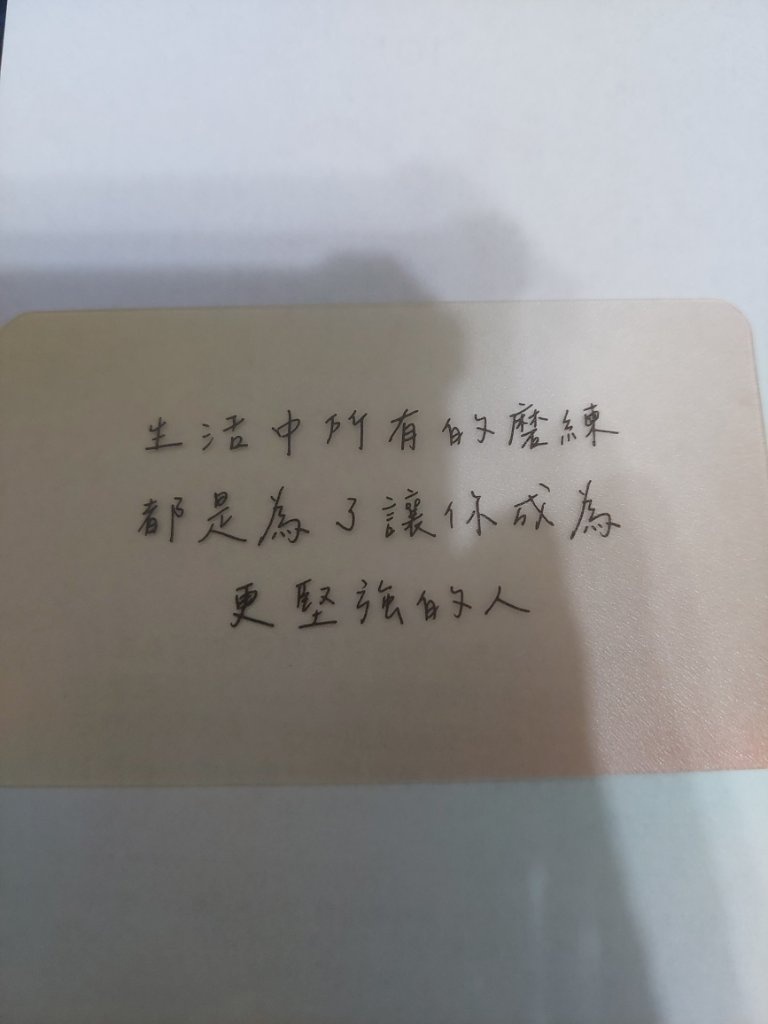 生活中所有的磨練
都是為了讓你成為
更堅強的人